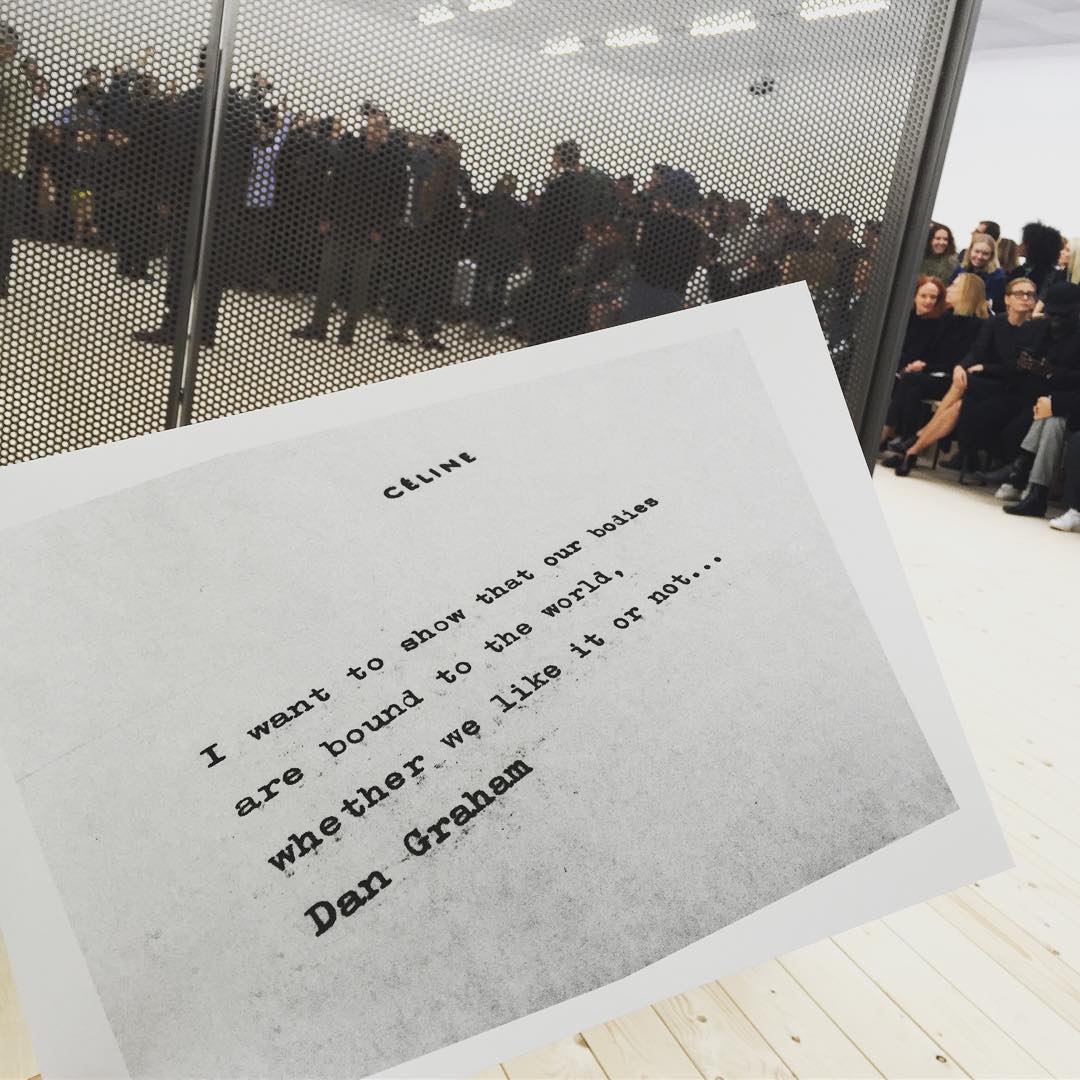 CÉLINE
I want to show that our bodies
are bound to the world,
whether we like it or not...
Dan Graham